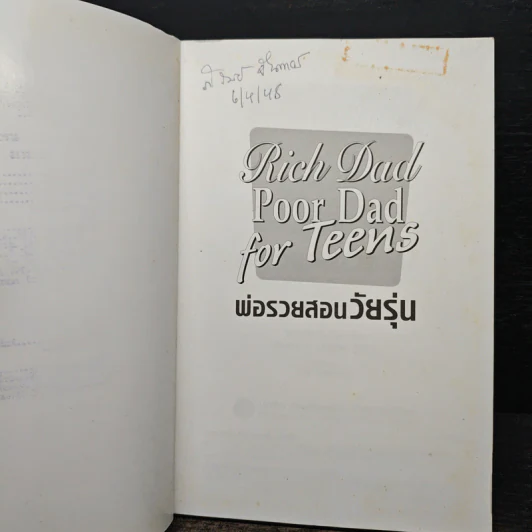 6/4/48
Rich Dad
Poor Dad
for Teens
พ่อรวยสอนวัยรุ่น